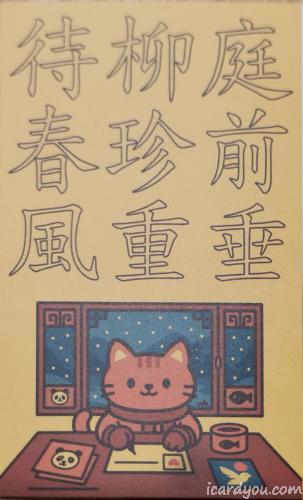 庭前垂
柳珍重
待春風
icardyou.com